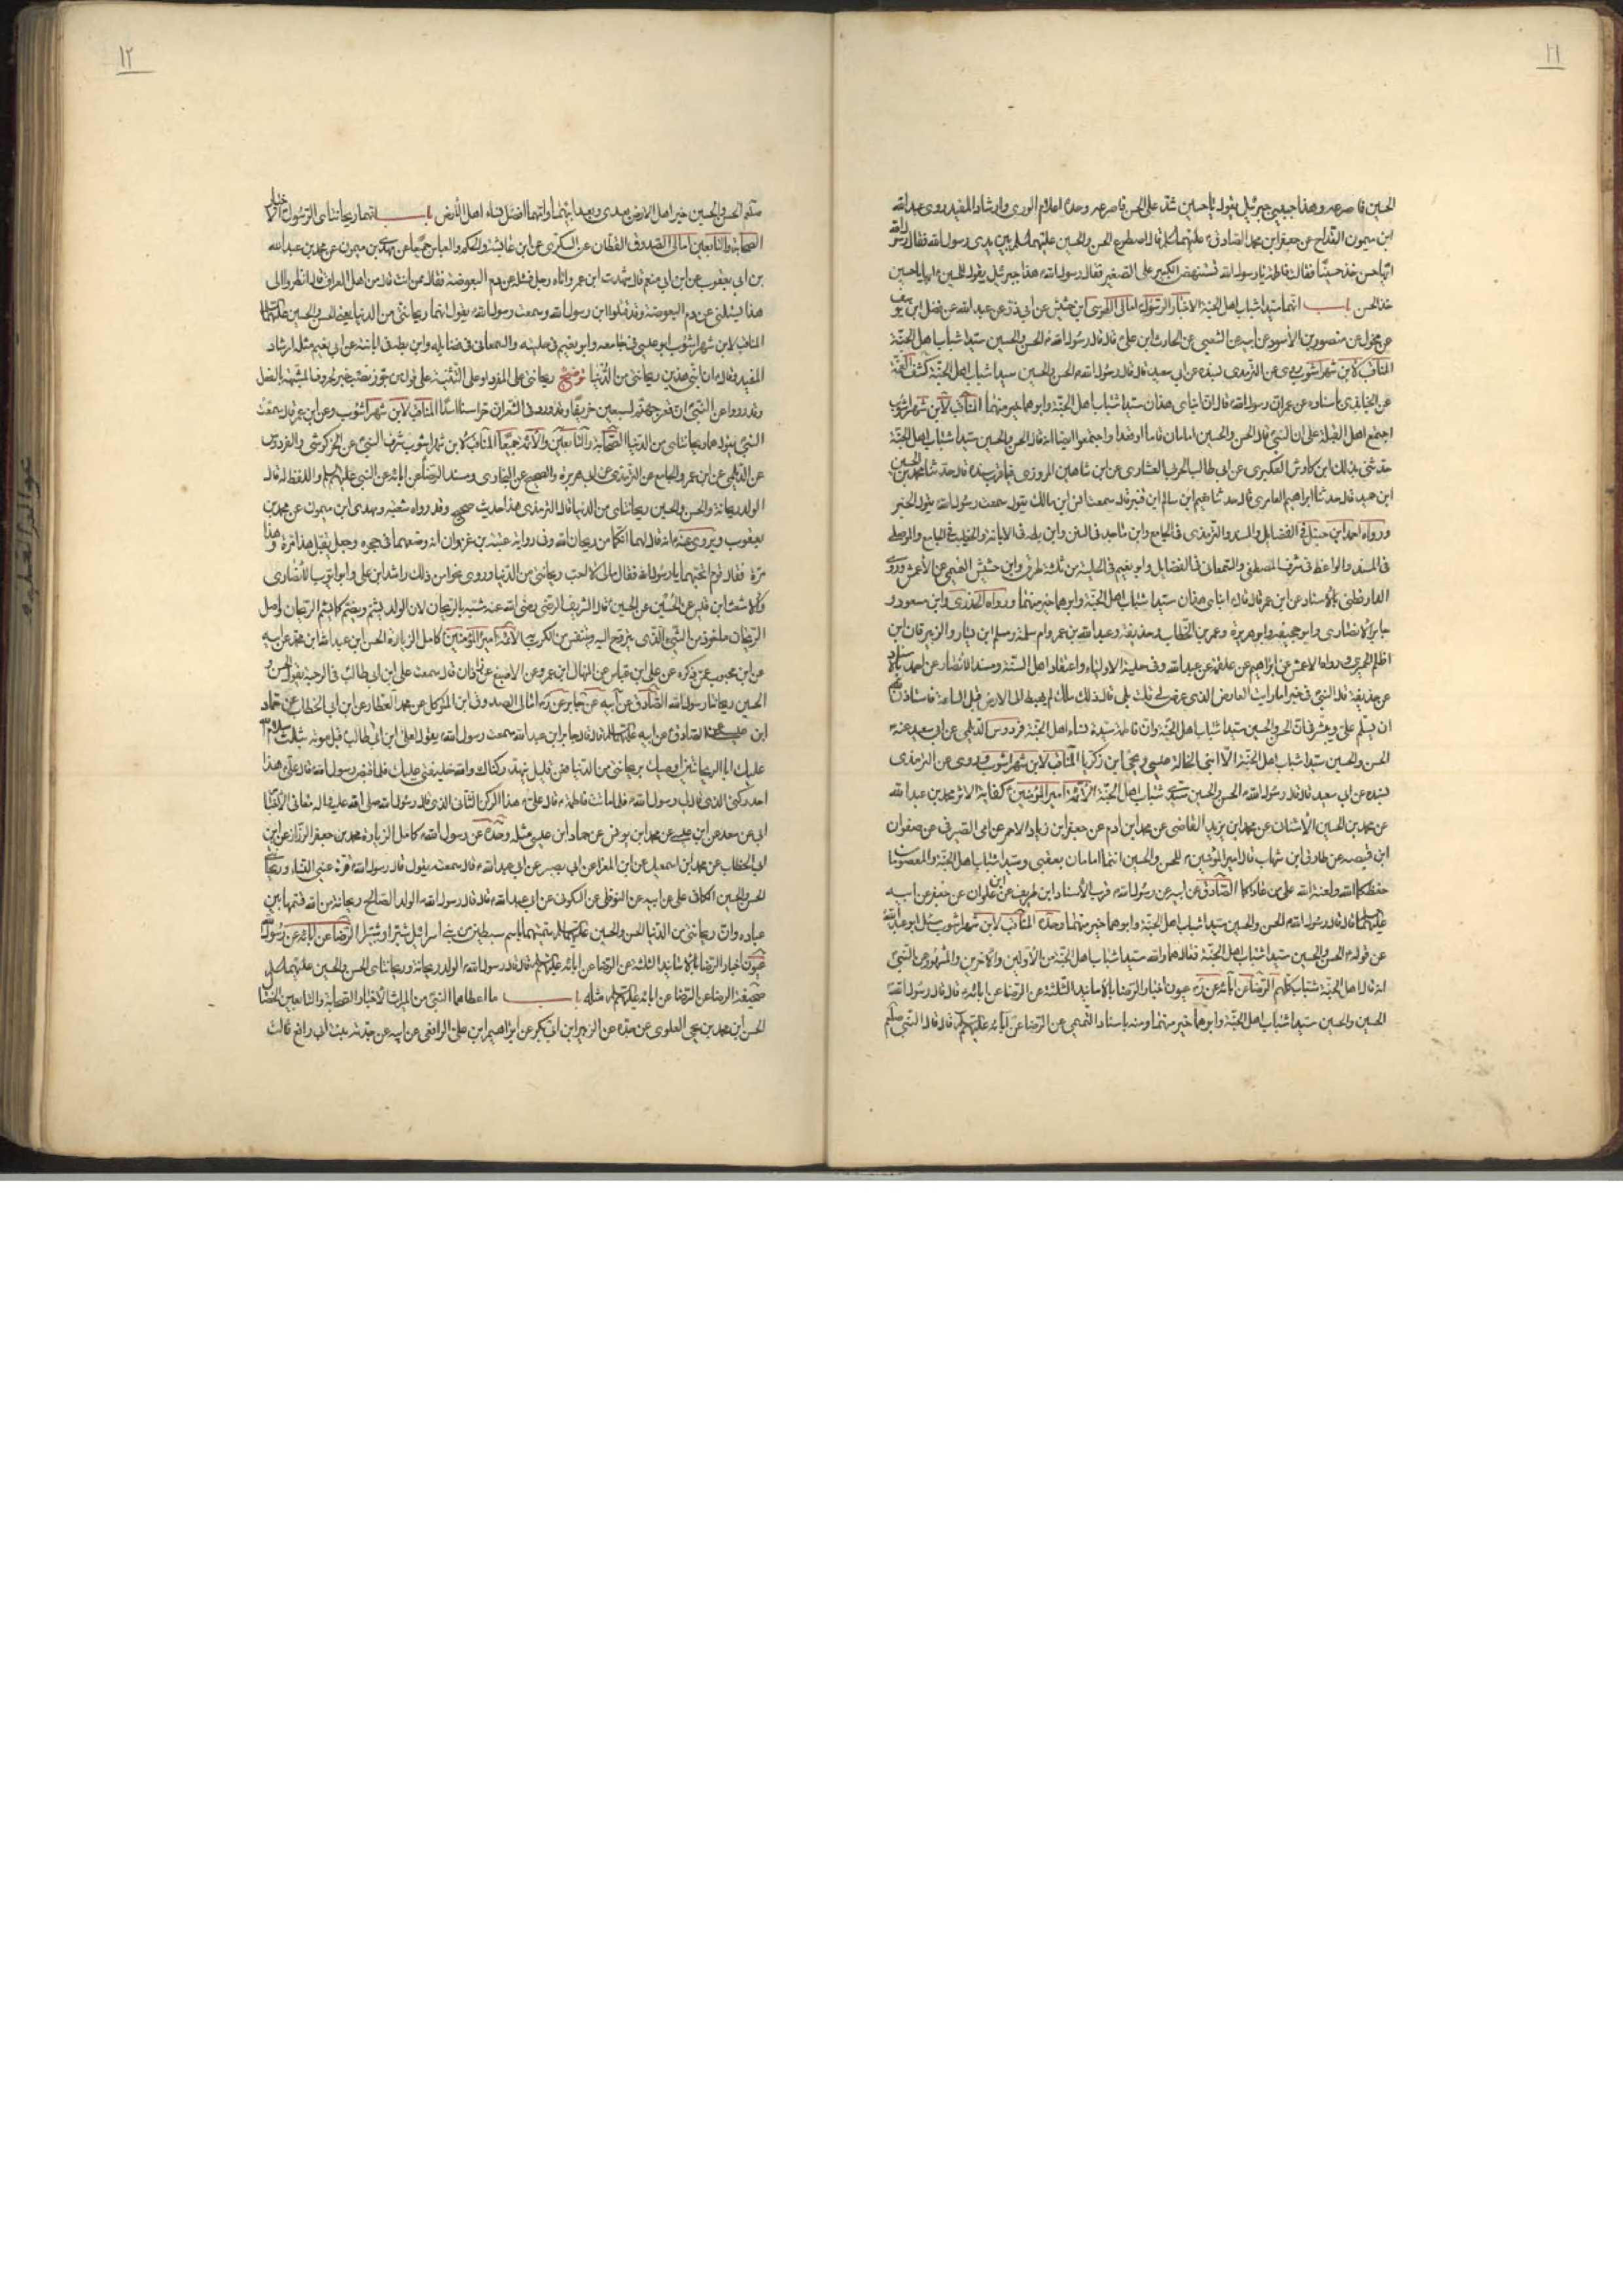 ١١
الحسين فاصرعه وهذا حبيبي جبرئيل يقول يا حسين شد على الحسن فاصرعه وحده اعلام الورى وارشاد المفيد روى عبد الله
ابن ميمون القداح عن جعفر ابن محمد الصادق قال اصطرع الحسن والحسين عليهما السلام بين يدى رسول الله فقال رسول الله
ايها حسن خذ حسينا فقالت فاطمة يا رسول الله تستنهض الكبير على الصغير فقال رسول الله هذا جبرئيل يقول للحسين ايها يا حسين
خذ الحسن باب انهما سيدا شباب اهل الجنة الاخبار الرسول امالى الطوسى ابن حشيش عن ابي ذر عن عبد الله عن فضل ابن يوسف
عن مخول عن منصور بن الاسود عن ابيه عن الشعبي عن الحارث ابن على قال قال رسول الله الحسن والحسين سيدا شباب اهل الجنة
المناقب لابن شهراشوب روى عن الترمذى بسنده عن ابي سعيد قال قال رسول الله الحسن والحسين سيدا شباب اهل الجنة كشف الغمة
عن الجنابذى باسناده عن عمر ان رسول الله قال ان ابناى هذان سيدا شباب اهل الجنة وابوهما خير منهما المناقب لابن شهراشوب
اجتمع اهل القبلة على ان النبي قال الحسن والحسين امامان قاما او قعدا واجتمعوا ايضا انه قال الحسن والحسين سيدا شباب اهل الجنة
حدثني بذلك ابن كادش العكبرى عن ابي طالب الحربى العشارى عن ابن شاهين المروزى فيما قرب سنده قال حدثنا محمد بن الحسين
ابن حميد قال حدثنا ابراهيم العامرى قال حدثنا نعيم ابن سالم ابن قنبر قال سمعت انس ابن مالك يقول سمعت رسول الله يقول الخبر
ورواه احمد ابن حنبل فى الفضايل والمسند والترمذى فى الجامع وابن ماجه فى السنن وابن بطه فى الابانة والخطيب فى التاريخ والموصلى
فى المسند والواعظ فى شرف المصطفى والسمعانى فى الفضايل وابو نعيم فى الحلية من ثلثة طرق وابن حشيش التميمى عن الاعمش وروى
الدارقطنى بالاسناد عن ابن عمر قال قال ابناى هذان سيدا شباب اهل الجنة وابوهما خير منهما ورواه الخدرى وابن مسعود و
جابر الانصارى وابو جحيفه وابو هريرة وعمر بن الخطاب وحذيفة وعبد الله بن عمر وام سلمة ومسلم ابن يسار والزبرقان ابن
اظلم الحميرى ورواه الاعمش عن ابراهيم عن علقمة عن عبد الله وفى حلية الاولياء واعتقاد اهل السنة ومسند الانصار عن احمد بالاسناد
عن حذيفة قال النبي فى خبر اما رايت العارض الذى عرض لى قلت بلى قال ذلك ملك لم يهبط الى الارض قبل الساعة فاستاذن الله
ان يسلم على ويبشرنى ان الحسن والحسين سيدا شباب اهل الجنة وان فاطمة سيدة نساء اهل الجنة فردوس الديلمى عن ابي سعيد عنه
الحسن والحسين سيدا شباب اهل الجنة الا ابنى الخالة عيسى ويحيى ابن زكريا المناقب لابن شهراشوب وروى عن الترمذى
بسنده عن ابي سعيد قال قال رسول الله الحسن والحسين سيدى شباب اهل الجنة الائمة امير المؤمنين كفاية الاثر محمد بن عبد الله
عن محمد بن الحسين الاشنان عن محمد ابن يزيد القاضى عن محمد ابن ادم عن جعفر ابن زياد الاحمر عن ابي الصيرفى عن صفوان
ابن قبيصه عن طارق ابن شهاب قال امير المؤمنين للحسن والحسين انتما امامان بعقبى وسيدا شباب اهل الجنة والمعصومان
حفظكما الله ولعنة الله على من عاداكما الصادق عن ابيه عن رسول الله قرب الاسناد ابن طريف عن ابن علوان عن جعفر عن ابيه
عليهما السلام قال قال رسول الله الحسن والحسين سيدا شباب اهل الجنة وابوهما خير منهما وحده المناقب لابن شهراشوب سئل ابو عبد الله
عن قوله الحسن والحسين سيدا شباب اهل الجنة فقال هما والله سيدا شباب اهل الجنة من الاولين والاخرين والمشهور عن النبي
انه قال اهل الجنة شباب كلهم الرضا عن ابائه عن عيون اخبار الرضا بالاسانيد الثلثة عن الرضا عن ابائه قال قال رسول الله
الحسن والحسين سيدا شباب اهل الجنة وابوهما خير منهما ومنه باسناد التميمى عن الرضا عن ابائه عليهم السلام قال قال النبي صلعم
١٢
صلعم الحسن والحسين خير اهل الارض بعدى وبعد ابيهما وامهما افضل نساء اهل الارض باب انهما ريحانتاى الرسول الاخبار
الصحابة والتابعين امالى الصدوق القطان عن السكرى عن ابن عائشة والحكم والعباس جميعا عن مهدى بن ميمون عن محمد بن عبد الله
بن ابي يعقوب عن ابن ابي نعم قال شهدت ابن عمر واتاه رجل فسئله عن دم البعوضة فقال ممن انت قال من اهل العراق قال انظروا الى
هذا يسئلني عن دم البعوضة وقد قتلوا ابن رسول الله وسمعت رسول الله يقول انهما ريحانتي من الدنيا يعنى الحسن والحسين عليهما السلام
المناقب لابن شهراشوب ابو عيسى فى جامعه وابو نعيم فى حليته والسمعانى فى فضايله وابن بطه فى ابانته عن ابي نعيم مثله ارشاد
المفيد وقال ان ابنى هذين ريحانتى من الدنيا توضيح ريحانتى على المفرد او على التثنية على قول من جوز نصب خبر الحروف المشبهة بالفعل
وقد رووا عن النبي ان قعر جهنم لسبعين خريفا وقد ورد فى الشعر ان حراسنا اسدا المناقب لابن شهراشوب وعن ابن عمر قال سمعت
النبي يقول هما ريحانتاى من الدنيا الصحابة والتابعين والائمة جميعا المناقب لابن شهراشوب شرف النبي عن الخركوشى والفردوس
عن الديلمى عن ابن عمر والجامع عن الترمذى عن ابي هريرة والصحيح عن البخارى ومسند الرضا عن ابائه عن النبي عليهم السلام واللفظ له قال
الولد ريحانة والحسن والحسين ريحانتاى من الدنيا قال الترمذى هذا حديث صحيح وقد رواه شعبه ومهدى ابن ميمون عن محمد بن
يعقوب ويروى عنه انه قال لهما انكما من ريحان الله وفى رواية عتبة بن غزوان انه وضعهما فى حجره وجعل يقبل هذا مرة وهذا
مرة فقال قوم اتحبهما يا رسول الله فقال مالى لا احب ريحانتى من الدنيا وروى نحوا من ذلك راشد ابن على وابو ايوب الانصارى
والاشعث ابن قيس عن الحسين قال الشريف الرضى رضى الله عنه شبه بالريحان لان الولد يشم ويضم كما يشم الريحان واصل
الريحان ماخوذ من الشيء الذى يتروح اليه ويتنفس من الكرب به الائمة امير المؤمنين كامل الزيارة الحسن ابن عبد الله ابن محمد عن ابيه
عن ابن محبوب عمن ذكره عن على ابن عباس عن المنهال ابن عمرو عن الاصبغ عن زاذان قال سمعت على ابن ابي طالب فى الرحبة يقول الحسن و
الحسين ريحانتا رسول الله الصادق عن ابيه عن جابر عن امالى الصدوق ابن المتوكل عن محمد العطار عن ابن ابي الخطاب عن حماد
ابن عيسى عن الصادق عن ابيه عليهما السلام قال قال جابر ابن عبد الله سمعت رسول الله يقول لعلى ابن ابي طالب قبل موته بثلث سلام
عليك ابا الريحانتين اوصيك بريحانتى من الدنيا فعن قليل ينهد ركناك والله خليفتى عليك فلما قبض رسول الله قال على هذا
احد ركنى الذى قال لى رسول الله فلما ماتت فاطمة قال على هذا الركن الثانى الذى قال رسول الله صلى الله عليه واله معانى الاخبار
ابي عن سعد عن ابن عيسى عن محمد ابن يونس عن حماد ابن عيسى مثله وحده عن رسول الله كامل الزيارة محمد بن جعفر الرزاز عن ابن
ابي الخطاب عن محمد ابن اسمعيل عن ابن المغرا عن ابي بصير عن ابي عبد الله قال سمعته يقول قال رسول الله قرة عيني النساء وريحانتى
الحسن والحسين الكافى على عن ابيه عن النوفلى عن السكونى عن ابي عبد الله قال قال رسول الله الولد الصالح ريحانة من الله قسمها بين
عباده وان ريحانتى من الدنيا الحسن والحسين عليهما السلام سميتهما باسم سبطين من بنى اسرائيل شبرا وشبيرا الرضا عن ابائه عن رسول الله
عيون اخبار الرضا بالاسانيد الثلثة عن الرضا عن ابائه عليهم السلام قال قال رسول الله الولد ريحانة وريحانتاى الحسن والحسين عليهما السلام
صحيفة الرضا عن الرضا عن ابائه عليهم السلام مثله باب ما اعطاهما النبي من الميراث الاخبار الصحابة والتابعين الخصال
الحسن ابن محمد بن يحيى العلوى عن جده عن الزبير ابن ابي بكر عن ابراهيم ابن على الرافعى عن ابيه عن جدته بنت ابي رافع قالت